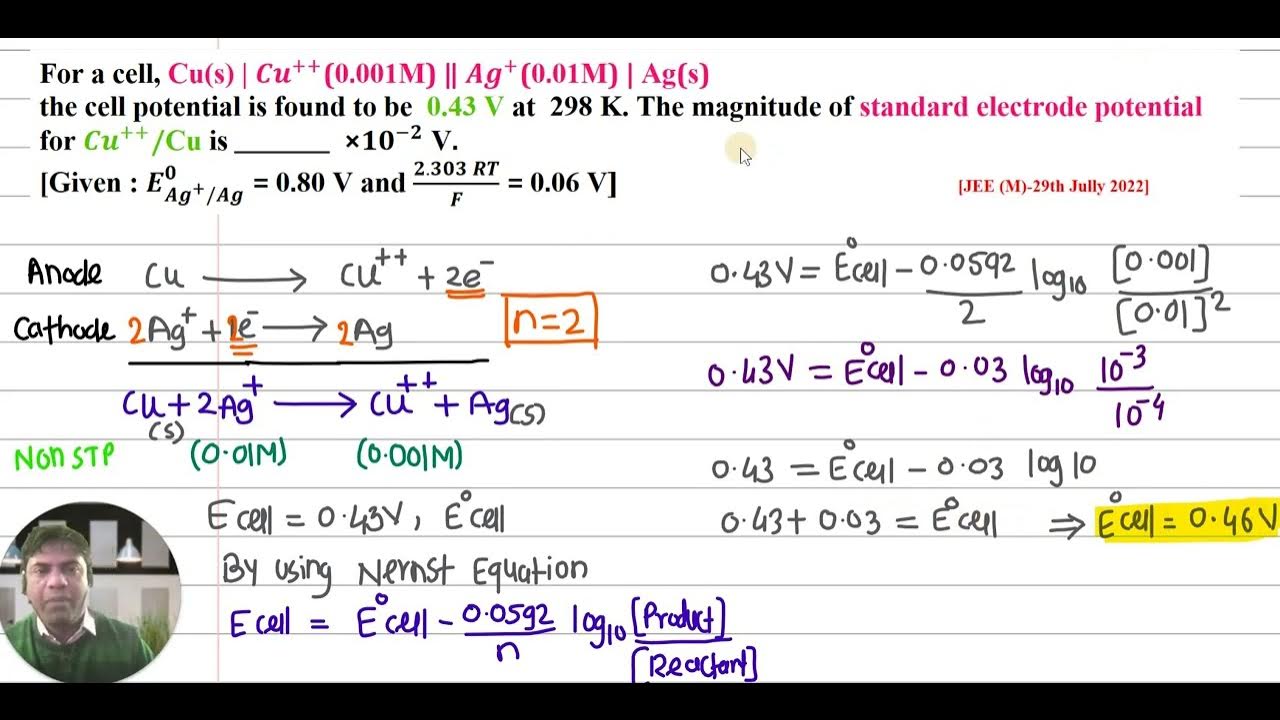 For a cell, Cu(s) | Cu⁺⁺(0.001M) ‖ Ag⁺(0.01M) | Ag(s)
the cell potential is found to be 0.43 V at 298 K. The magnitude of standard electrode potential
for Cu⁺⁺/Cu is ______ ×10⁻² V.
[Given : E⁰Ag⁺/Ag = 0.80 V and 2.303 RT/F = 0.06 V]
[JEE (M)-29th Jully 2022]
Anode Cu ⟶ Cu⁺⁺ + 2e⁻
Cathode 2Ag⁺ + 2e⁻ ⟶ 2Ag
n=2
Cu + 2Ag⁺ ⟶ Cu⁺⁺ + Ag(s)
(s)
Non STP (0.01M) (0.001M)
Ecell = 0.43V, E°cell
By using Nernst Equation
Ecell = E°cell - 0.0592/n log₁₀ [Product]/[Reactant]
0.43V = E°cell - 0.0592/2 log₁₀ [0.001]/[0.01]²
0.43V = E°cell - 0.03 log₁₀ 10⁻³/10⁻⁴
0.43 = E°cell - 0.03 log10
0.43 + 0.03 = E°cell ⇒ E°cell = 0.46V